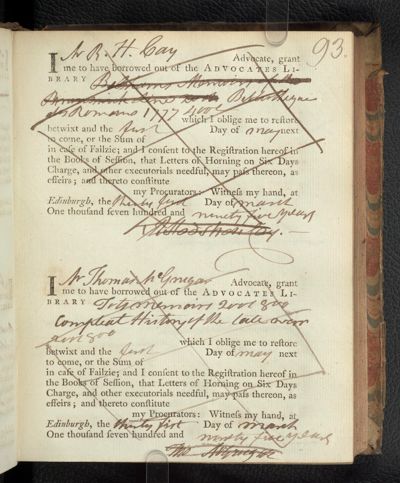 93.
I Mr R. H. Cay Advocate, grant
me to have borrowed out of the ADVOCATES LI-
BRARY
Bibliotheque
des Romans 1777 4 vols
which I oblige me to restore
betwixt and the first Day of may next
to come, or the Sum of
in case of Failzie; and I consent to the Registration hereof in
the Books of Session, that Letters of Horning on Six Days
Charge, and other executorials needful, may pass thereon, as
effeirs; and thereto constitute
my Procurators: Witness my hand, at
Edinburgh, the thirty first Day of march
One thousand seven hundred and ninety five years
I Mr Thomas McGrugar Advocate, grant
me to have borrowed out of the ADVOCATES LI-
BRARY Tots memoirs 2 vols 8vo
Compleat History of the late war
8vo
which I oblige me to restore
betwixt and the first Day of may next
to come, or the Sum of
in case of Failzie; and I consent to the Registration hereof in
the Books of Session, that Letters of Horning on Six Days
Charge, and other executorials needful, may pass thereon, as
effeirs; and thereto constitute
my Procurators: Witness my hand, at
Edinburgh, the thirty first Day of march
One thousand seven hundred and ninety five years
Tho McGrugar